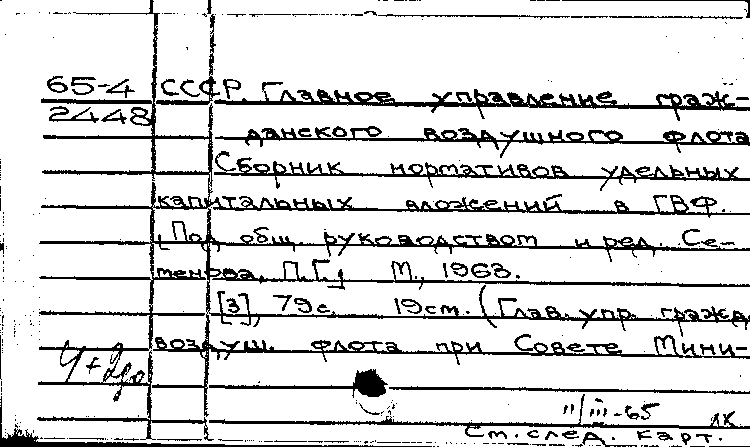 65-4 СССР. Главное управление граж-
2448 данского воздушного флота
Сборник нормативов удельных
капитальных вложений в ГВФ.
[Под общ. руководством и ред. Се-
менова, П.Г.] М., 1963.
[3], 79 с. 19 см. (Глав. упр. гражд.
воздуш. флота при Совете Мини-
11/III-65
См. след. карт.